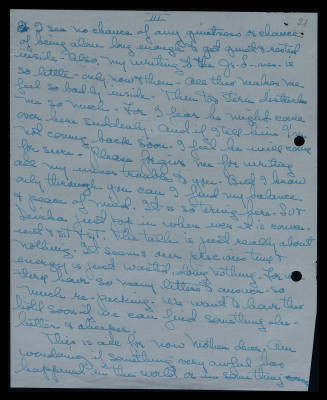 III
21
I see no chance of any quietness or chance
of being alone long enough to get quiet & rested
inside. Also, my writing of the is
so little - only now & then - all this makes me
feel so badly inside. Then too disturbs
me so much. For I fear he might come
over here suddenly. And if I tell him I'm
not coming back soon. I feel he will come
for sure. Please forgive me for writing
all my minor troubles to you. But I know
only through you can I find my balance
& peace of mind. It is so trying here. But
just pop in when ever it is conven-
ient & sit & sit. The talk is just really about
nothing. It seems our precious time &
energy is just wasted, doing nothing. For we
have so many letters to answer - so
much re-packing. We want to leave this
hotel soon if we can find something else -
better & cheaper.
This is all for now Mother dear. Am
wondering if something very awful has
happened in the world or is something